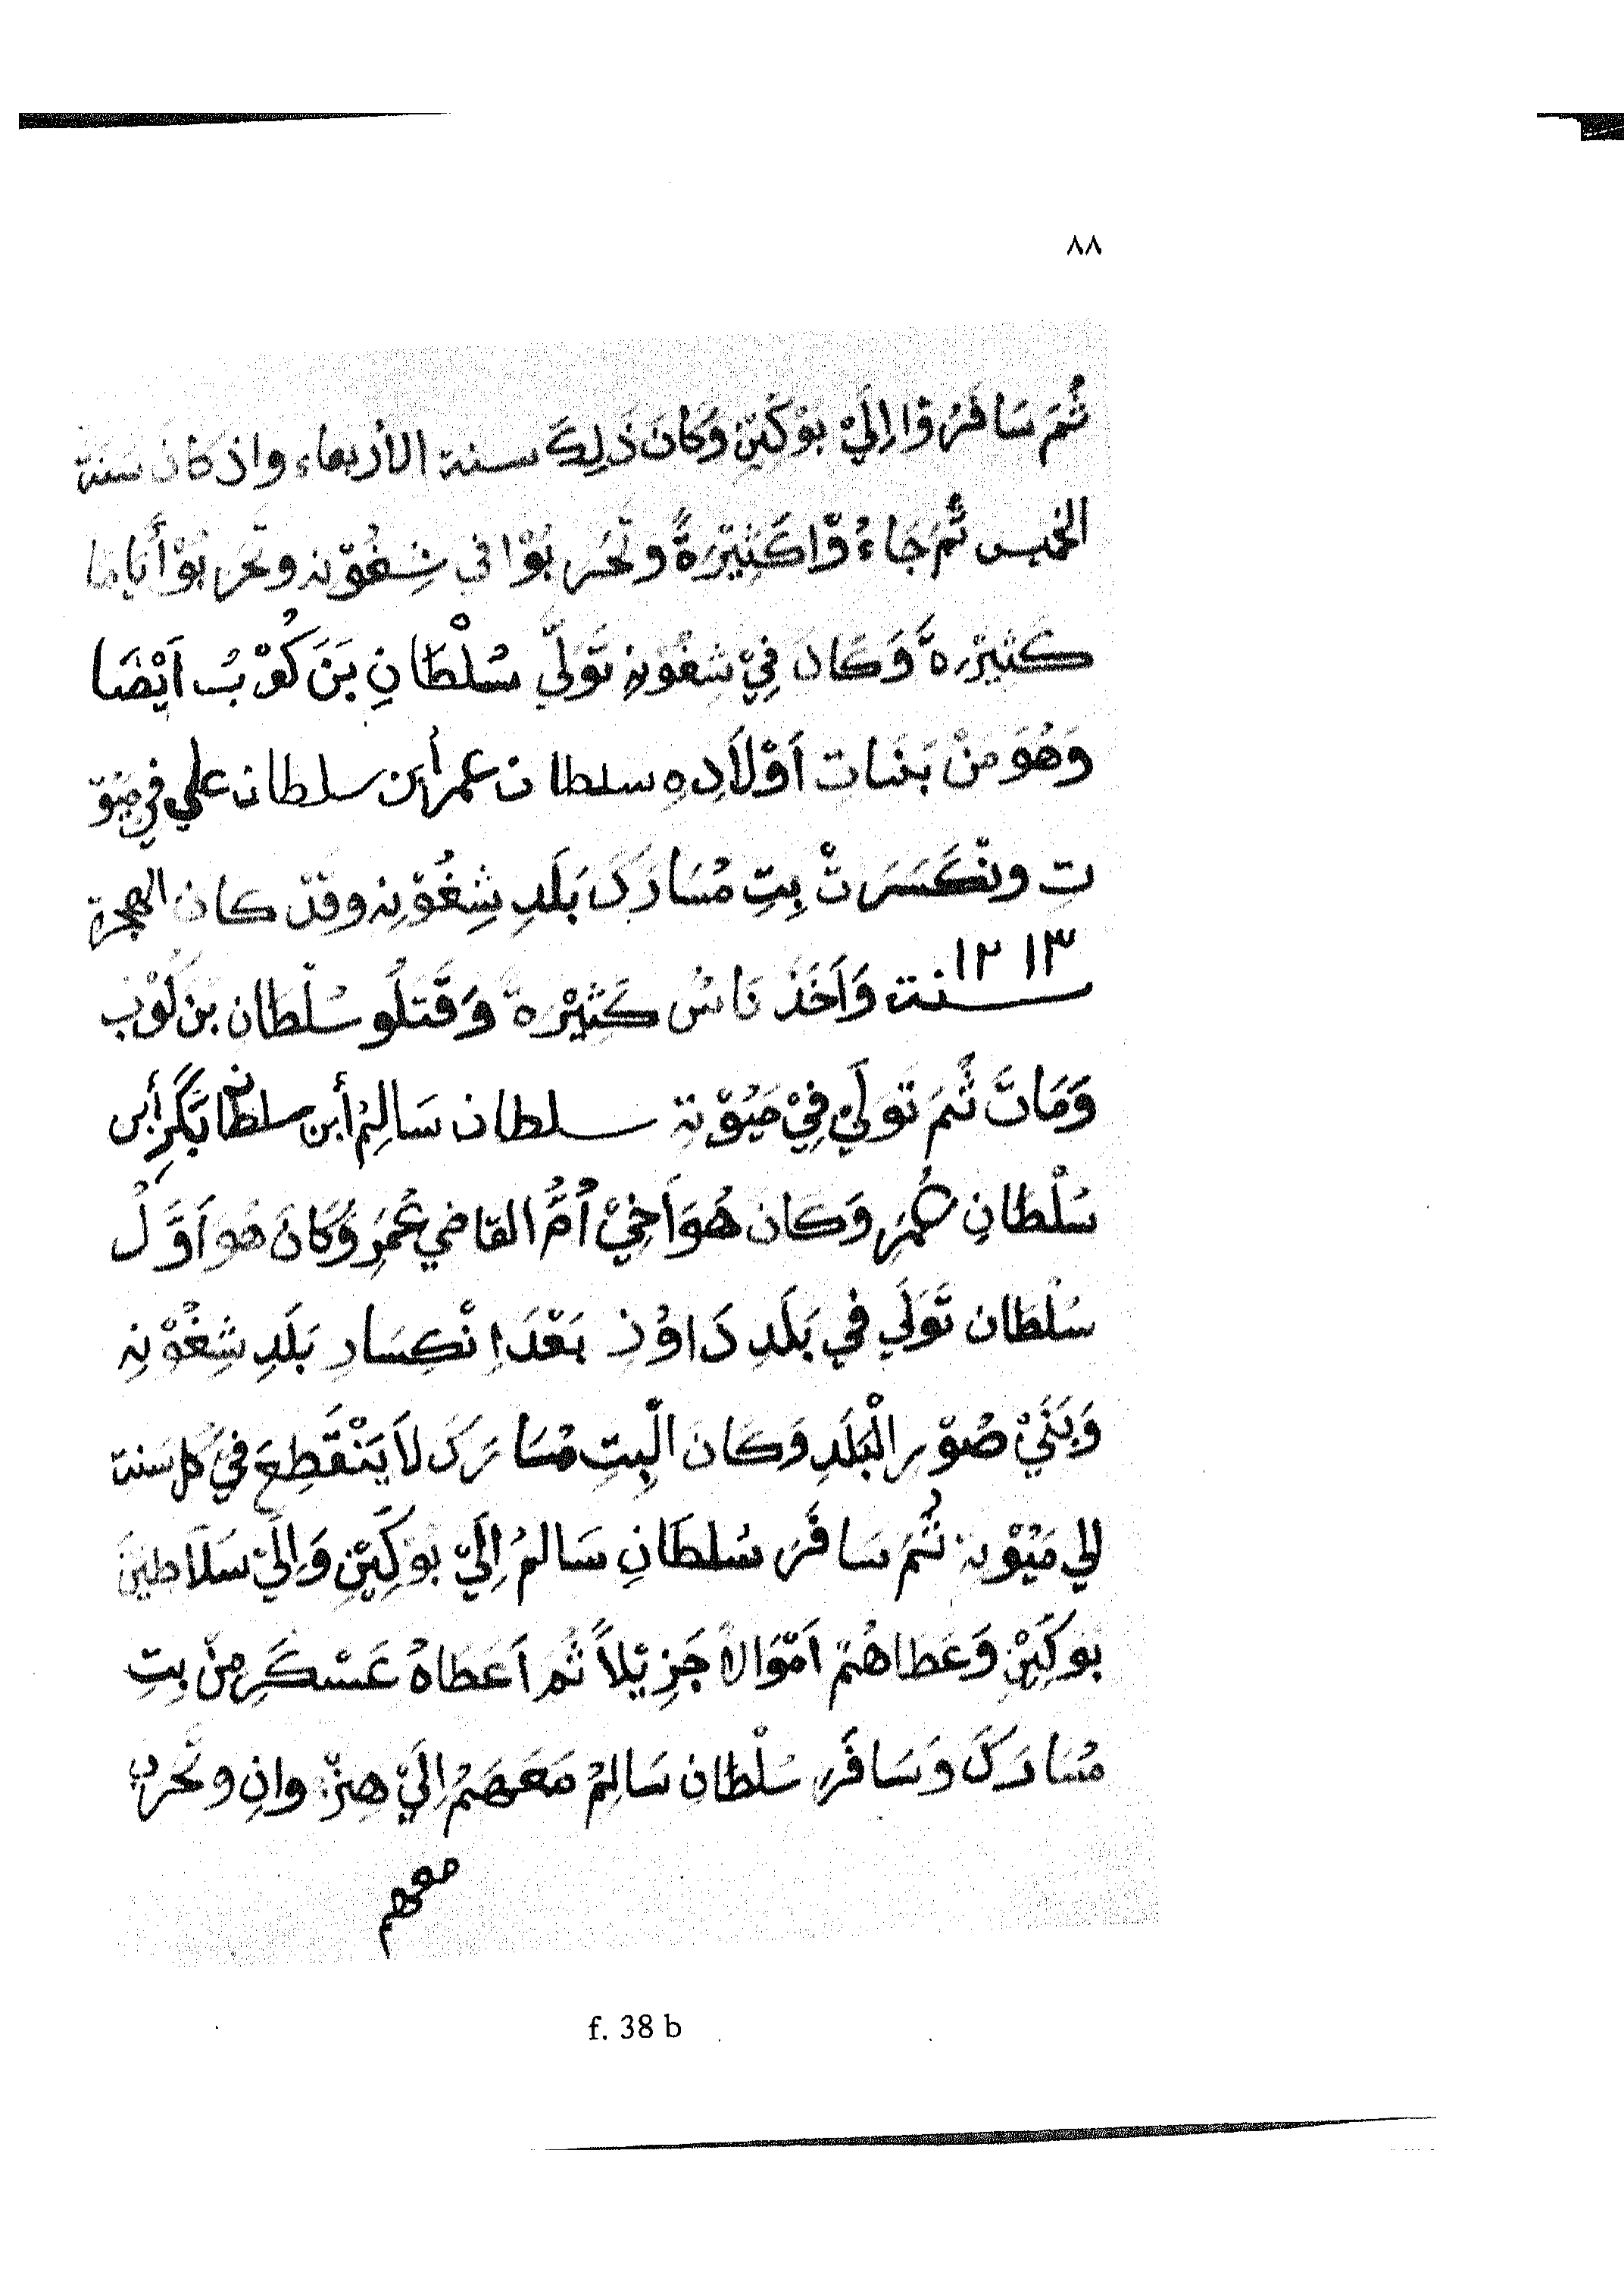 ٨٨
ثُمَ سَافَرُوْا اِلَيْ بَوْكَيْنِ وَكَانَ ذَلِكَ سنة الأربعاء واذ كان سَنَة
الخميس ثُمَ جَاءُوْا كَثِيْرَةً وتَحَرَبُوْا في شِغُوْنِه وتَحَرَبُوْا أَيَامَا
كَثِيْرَةً وَكَانَ فِيْ شِغُوْنِهِ تَوَلَّي سُلْطَانِ بَنَ كُوْبُ اَيْضَا
وَهُوَ مَنْ بَنَاتِ اَوْلَادِهِ سلطان عمر أبن سلطان علي في ميو
تِ ونْكَسَرَتْ بِتِ مُسَارَكَ بَلَدِ شِغُوْنِه وقَدْ كان الهجرة
١٢١٣
سنت وَاَخَذَ نَاسُ كَثِيْرَةً وَقَتَلُو سُلْطَان بَنَ كُوْبُ
وَمَاتَ ثُمَ تَوَلَيْ فِيْ مَيُوْتِ سلطان سَالِمُ أبن سلطان بَكَرِ أبن
سُلْطَانِ عُمَرِ وَكَانَ هُوَ اَخِيْ اُمُّ القاضي عُمَرِ وَكَانَ هُوَ اَوَّلُ
سُلْطَان تَوَلَي في بَلَدِ دَاوُنِ بَعْدَ اِنْكِسَارِ بَلَدِ شِغُوْنِه
وَبَنَيْ صُوْرِ الْبَلَدِ وَكَانَ الْبِتِ مُسَارَكَ لَا يَنْقَطِعَ فِيْ كُل سَنة
الي مَيُوْتِ ثُمَ سَافَرَ سُلطَانِ سَالمُ اِلَيْ بَوْكِيْنِ وَاِلَيْ سَلَاطِيْنَ
بَوكَيْنِ وَعَطَاهُمْ اَمْوَالاً جَزِيْلاً ثُم اَعَطَاهُ عَسْكَرِ مِنْ بِتِ
مُسَارَكَ وَسَافَرَ سُلْطَان سَالِمُ مَعَهَمُ اِلَيْ هِنْزُوانِ وتَحَرب
معهم
f. 38 b